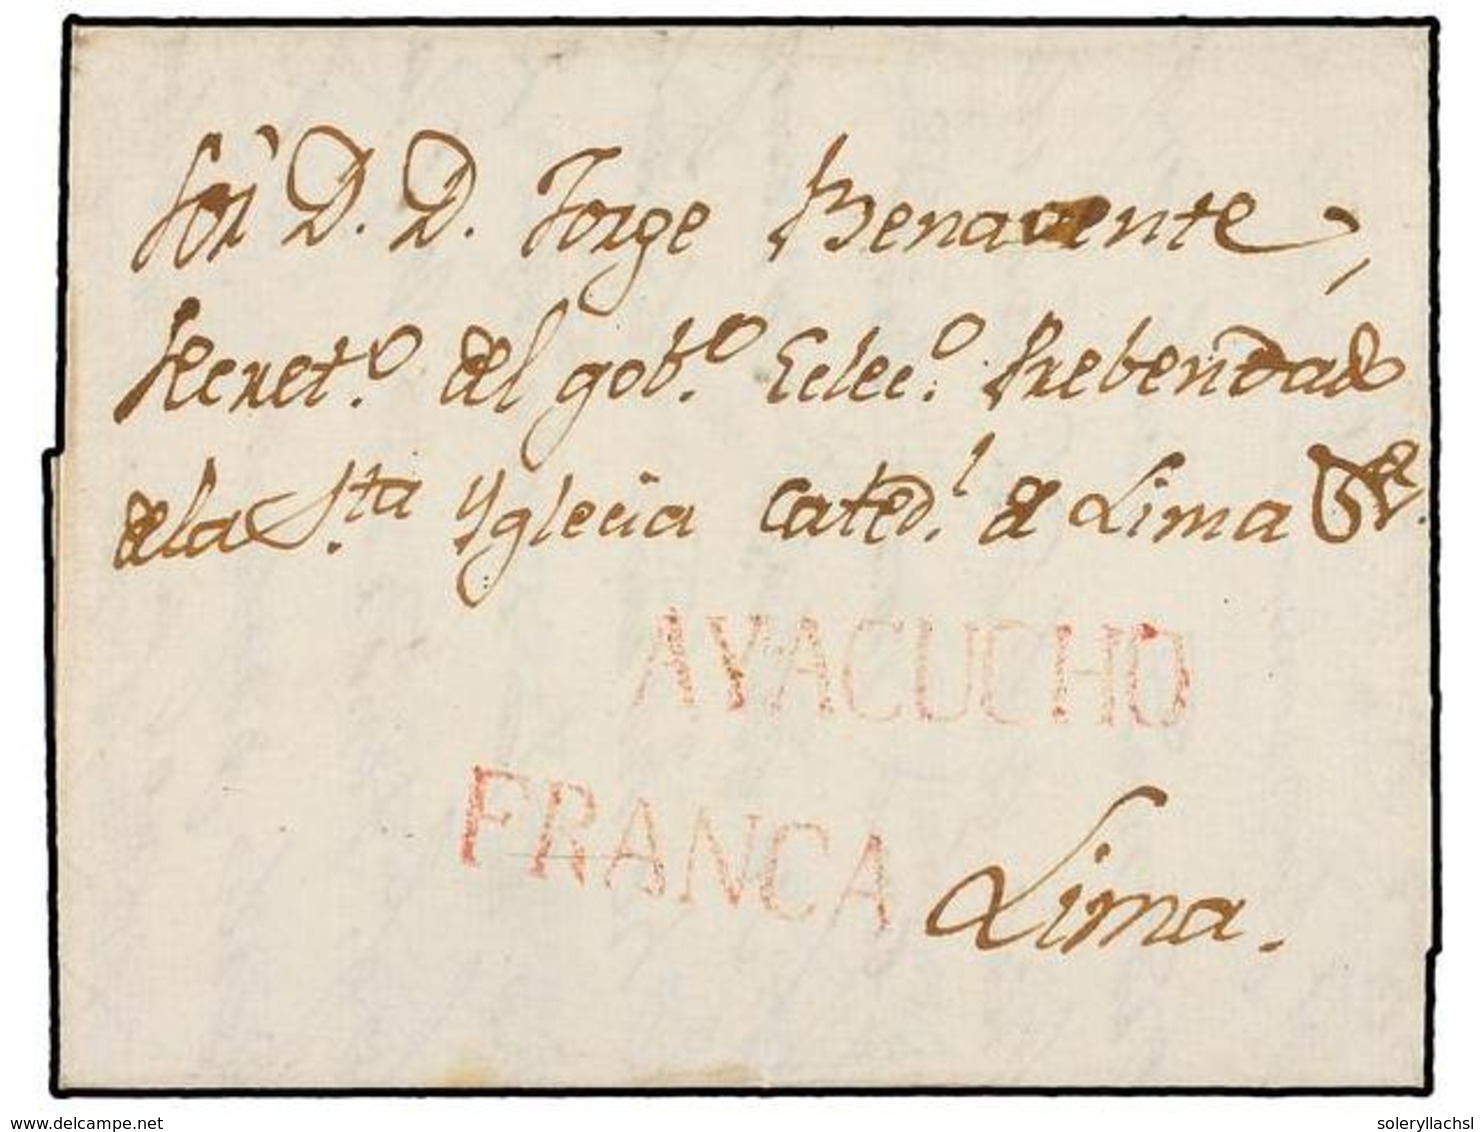 Sor. D. D. Jorge Benavente,
Secret.º del gob.º Eclec.º Prebendado
de la S.ta Yglecia Cated.l de Lima &.
AYACUCHO
FRANCA
Lima.
www.delcampe.net
soleryllachsl